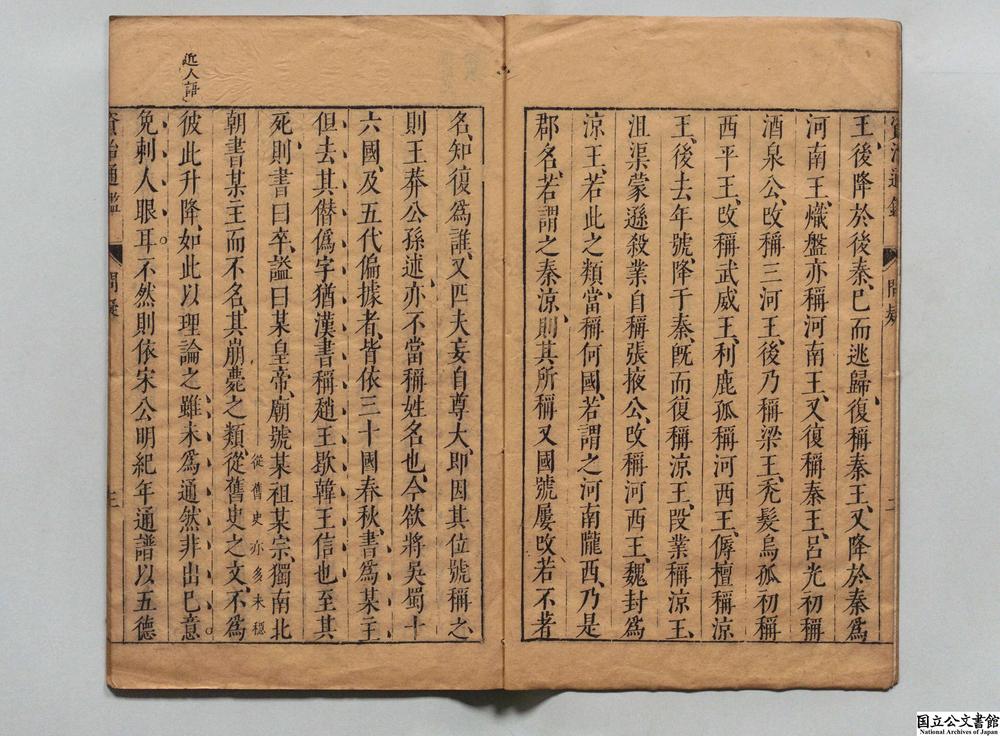 王後降於後秦已而逃歸復稱秦王又降於秦為
河南王熾盤亦稱河南王又復稱秦王呂光初稱
酒泉公改稱三河王後乃稱梁王禿髮烏孤初稱
西平王改稱武威王利鹿孤稱河西王傉檀稱涼
王後去年號降于秦旣而復稱涼王段業稱涼王
沮渠蒙遜殺業自稱張掖公改稱河西王魏封為
涼王若此之類當稱何國若謂之河南隴西乃是
郡名若謂之秦涼則其所稱又國號屢改若不著
資治通鑑 問疑 二
近人語
名知復爲誰又匹夫妄自尊大卽因其位號稱之
則王莽公孫述亦不當稱姓名也今欲將吳蜀十
六國及五代偏據者皆依三十國春秋書爲某主
但去其僭僞字猶漢書稱趙王歇韓王信也至其
死則書曰卒謚曰某皇帝廟號某祖某宗獨南北
從舊史亦多未穩
朝書某主而不名其崩薨之類從舊史之文不爲
彼此升降如此以理論之雖未爲通然非出已意
免刺人眼耳不然則依宋公明紀年通譜以五德
資治通鑑 問疑 三
国立公文書館
National Archives of Japan